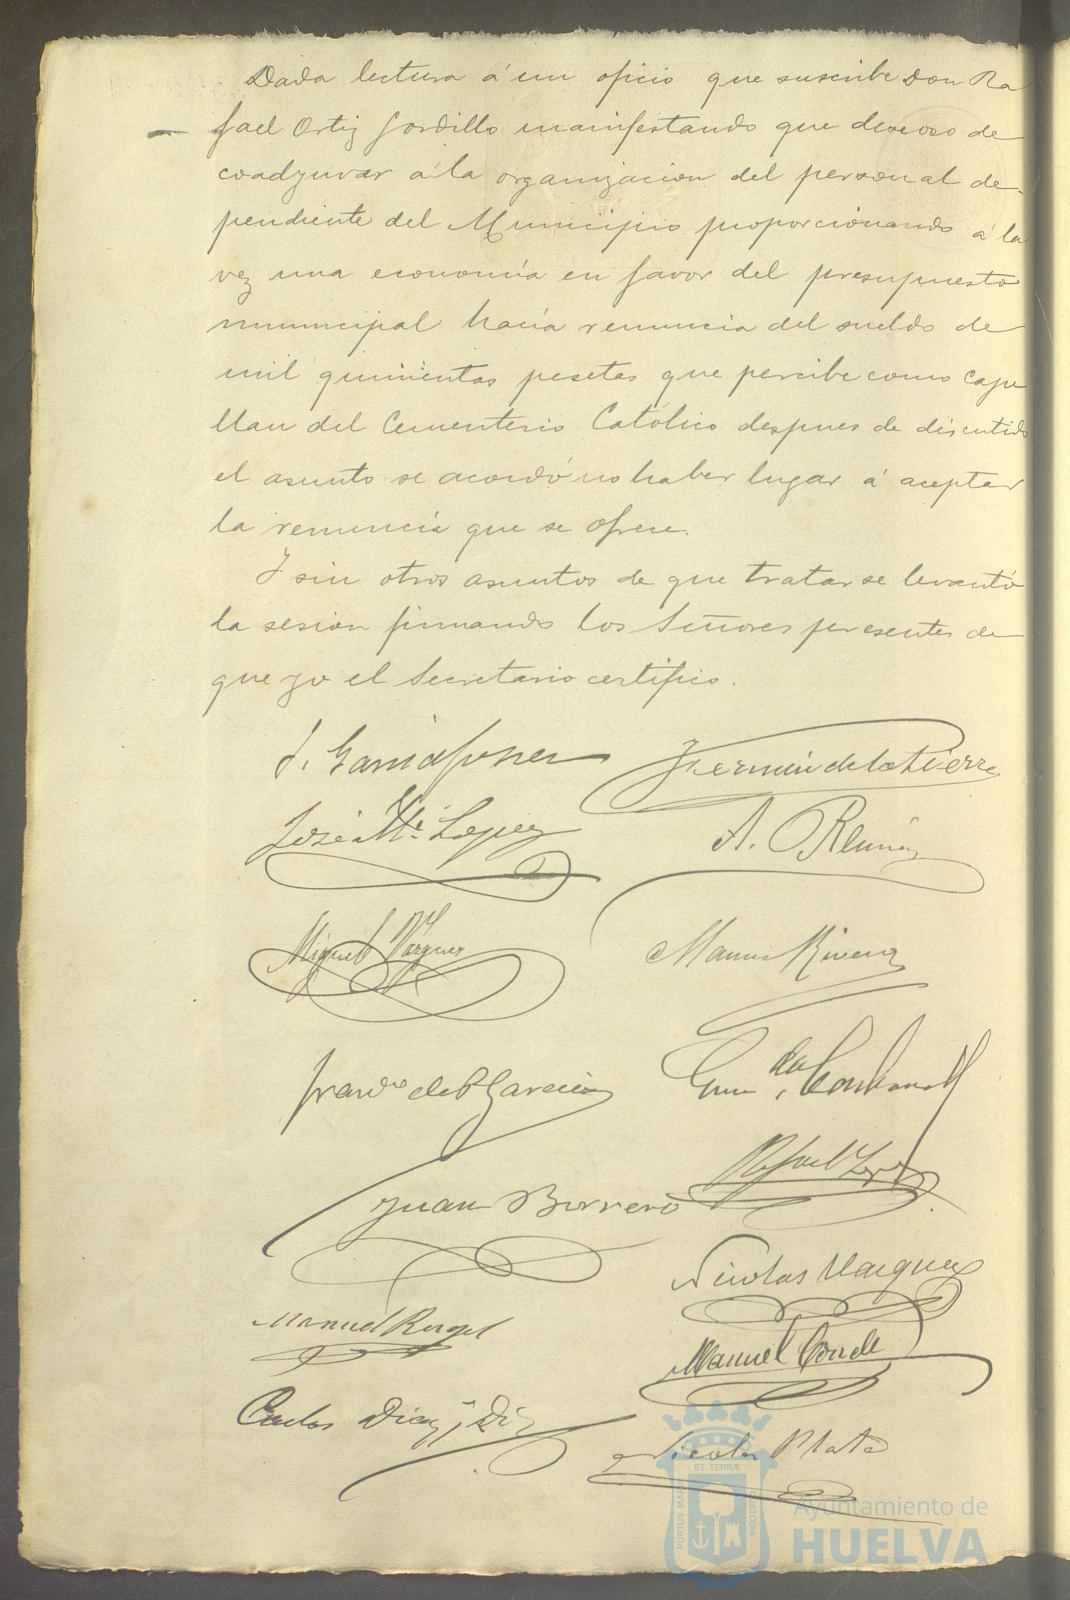 Dada lectura á un oficio que suscribe Don Ra
fael Ortiz Gordillo manifestando que deseoso de
coadyuvar á la organizacion del personal de-
pendiente del Municipio proporcionando á la
vez una economía en favor del presupuesto
municipal hacía renuncia del sueldo de
mil quinientas pesetas que percibe como cape
llan del Cementerio Católico despues de discutido
el asunto se acordó no haber lugar á aceptar
la renuncia que se ofrece.
Y sin otros asuntos de que tratar se levantó
la sesion firmando los Señores presentes de
que yo el Secretario certifico.
Fermin de la Sierra
José Mª Lopez
A.
Miguel Vázquez
Manuel Rivera
Franco de P Garcia
Rafael Lopez
Juan Borrero
Nicolas Vazquez
Manuel Rengel
Manuel Conde
Carlos Diaz y Diaz
Nicolas Plata
ET TERRÆ
PORTUS MARIS
CUSTODIA
Ayuntamiento de
HUELVA